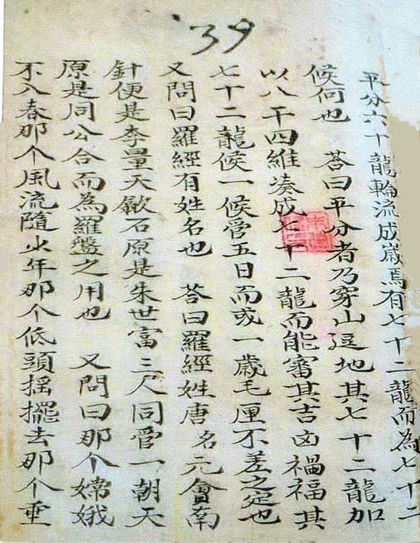 39
平分六十龍輪流成歲焉有七十二龍而為七十二
候何也 荅曰平分者乃穿山地其七十二龍加
以八干四維湊成七十二龍而能審其吉凶禍福其
七十二龍候一候管五日而成一歲毛厘不差之定也
又問曰羅經有姓名也 荅曰羅經姓唐名元會南
針便是李量天石原是朱世富三人同管一朝天
原是同公合而為羅盤之用也 又問曰那个嫦娥
不入春那个風流隨少年那个低頭搖擺去那个垂